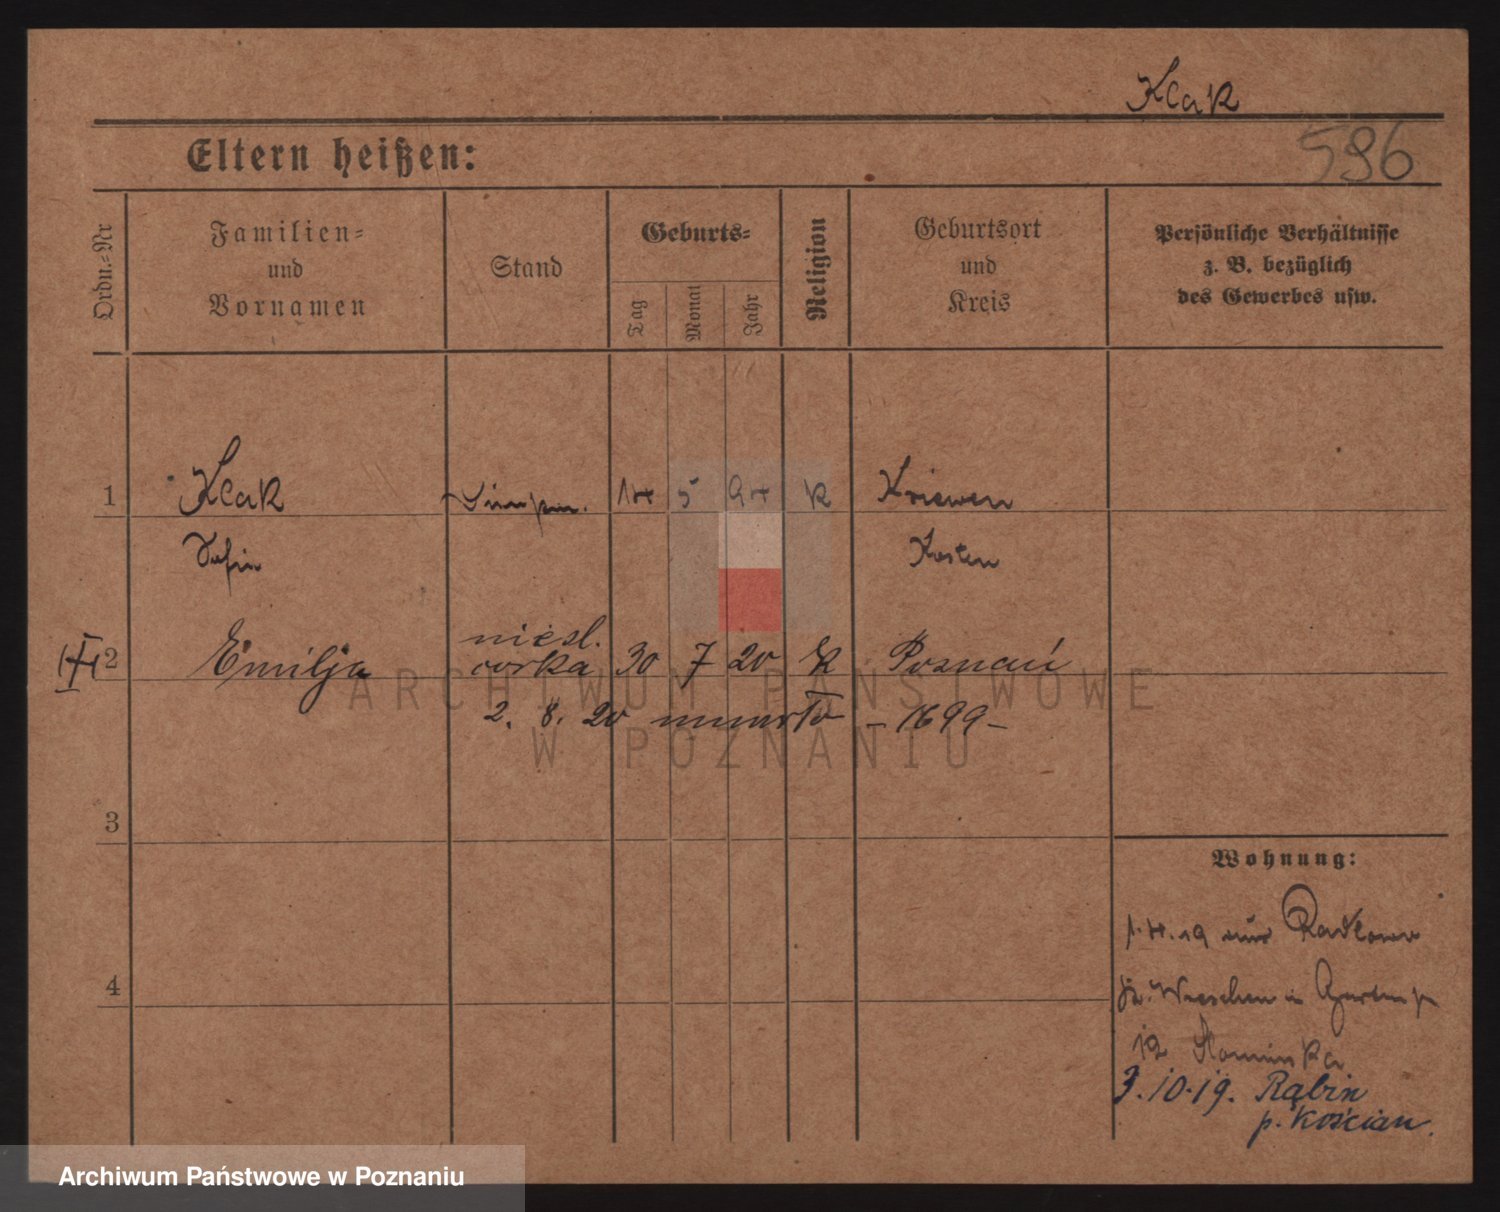 Klak
596
Eltern heißen:
Ordn.-Nr
Familien-
und
Vornamen
Stand
Geburts-
Tag
Monat
Jahr
Religion
Geburtsort
und
Kreis
Persönliche Verhältnisse
z. B. bezüglich
des Gewerbes usw.
1
Klak
14 5 94 k Kriewen
Kosten
2
Emilja
nieśl.
córka 30 7 20 k Poznań
2. 8. 20 umarła – 1699 –
3
4
Wohnung:
1.4.19 aus Radlowo
Kr. Wreschen in Gartenstr
12 Slominska
3.10.19. Rąbin
p. Kościan.
ARCHIWUM PAŃSTWOWE
W POZNANIU
Archiwum Państwowe w Poznaniu